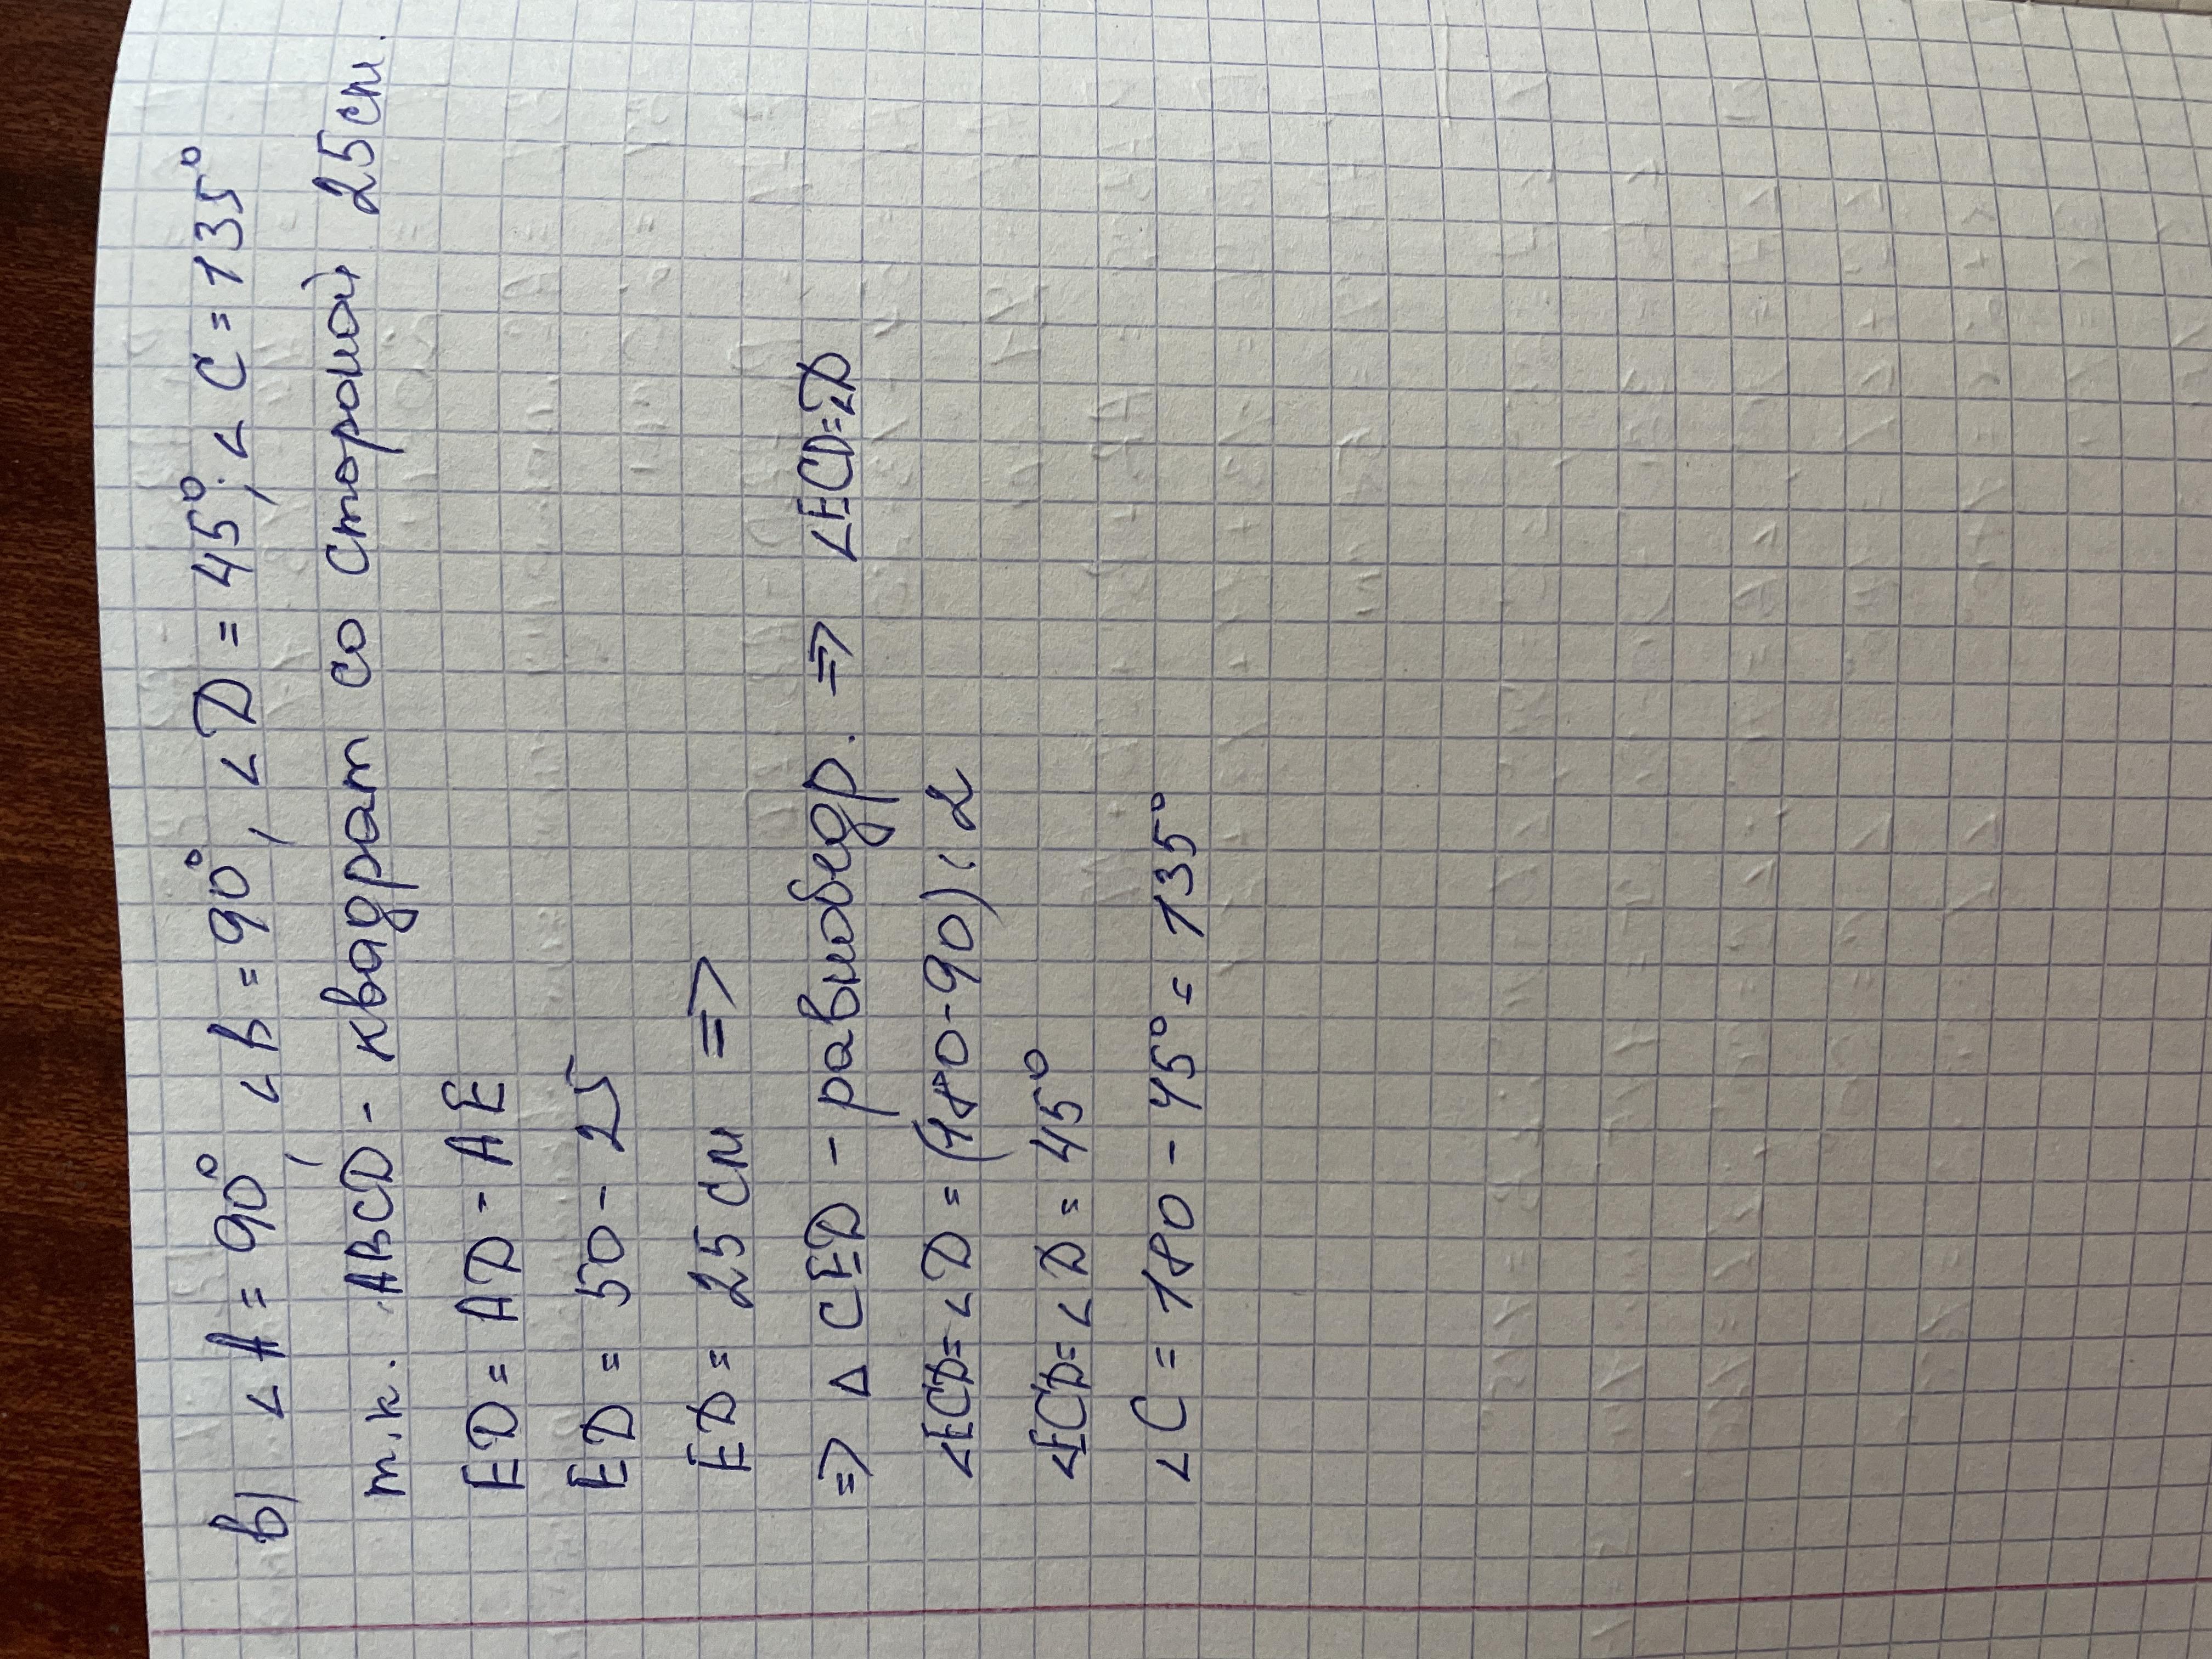 в) ∠A = 90°, ∠B = 90°, ∠D = 45°; ∠C = 135°
т.к. ABCD - квадрат со стороной 25 см.
ED = AD - AE
ED = 50 - 25
ED = 25 см =>
=> △ CED - равнобедр. => ∠ECD=∠D
∠ECD=∠D = (180-90):2
∠ECD=∠D = 45°
∠C = 180 - 45° = 135°